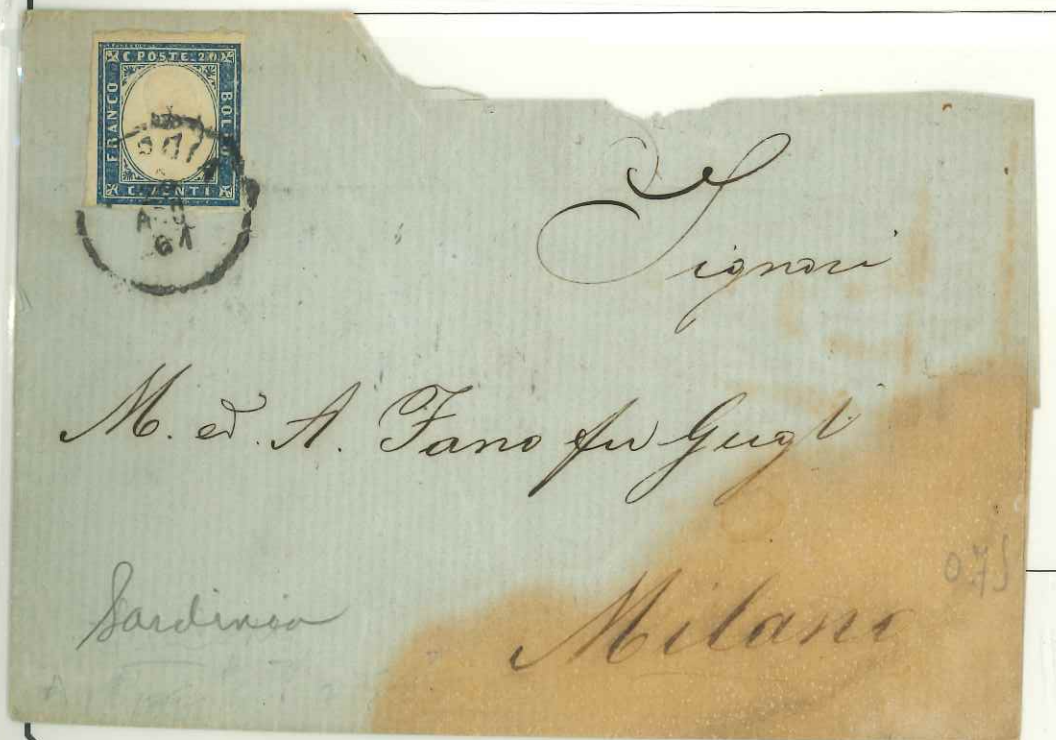 C. POSTE 20
FRANCO
BOLLO
C. VENTI
61
Signori
M. ed. A. Fano fu Gugl
Milano
0.75
Sardinia